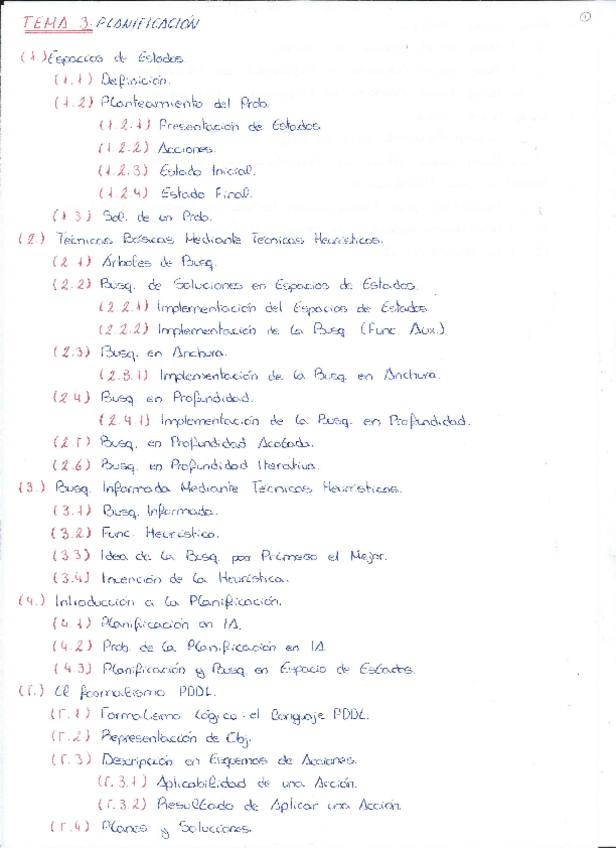 TEMA 3: PLANIFICACIÓN
1
(1.) Espacios de Estados.
(1.1) Definición.
(1.2) Planteamiento del Prob.
(1.2.1) Presentación de Estados.
(1.2.2) Acciones.
(1.2.3) Estado Inicial.
(1.2.4) Estado Final.
(1.3) Sol. de un Prob.
(2.) Técnicas Básicas Mediante Técnicas Heurísticas.
(2.1) Árboles de Busq.
(2.2) Busq. de Soluciones en Espacios de Estados.
(2.2.1) Implementación del Espacios de Estados.
(2.2.2) Implementación de la Busq. (Func. Aux.)
(2.3) Busq. en Anchura.
(2.3.1) Implementación de la Busq. en Anchura.
(2.4) Busq. en Profundidad.
(2.4.1) Implementación de la Busq. en Profundidad.
(2.5) Busq. en Profundidad Acotada.
(2.6) Busq. en Profundidad Iterativa.
(3.) Busq. Informada Mediante Técnicas Heurísticas.
(3.1) Busq. Informada.
(3.2) Func. Heurística.
(3.3) Idea de la Busq. por Primero el Mejor.
(3.4) Invención de la Heurística.
(4.) Introducción a la Planificación.
(4.1) Planificación en IA.
(4.2) Prob. de la Planificación en IA.
(4.3) Planificación y Busq. en Espacio de Estados.
(5.) El formalismo PDDL.
(5.1) Formalismo Lógico: el Lenguaje PDDL.
(5.2) Representación de Obj.
(5.3) Descripción en Esquemas de Acciones.
(5.3.1) Aplicabilidad de una Acción.
(5.3.2) Resultado de Aplicar una Acción.
(5.4) Planes y Soluciones.